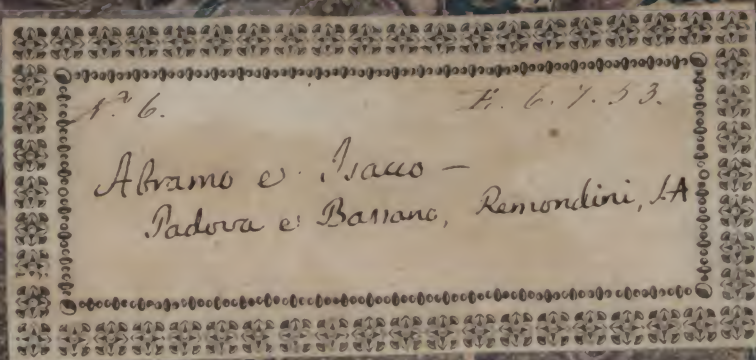 N.º 6. E. 6. 7. 53.
Abramo e Isacco —
Padova e Bassano, Remondini, SA